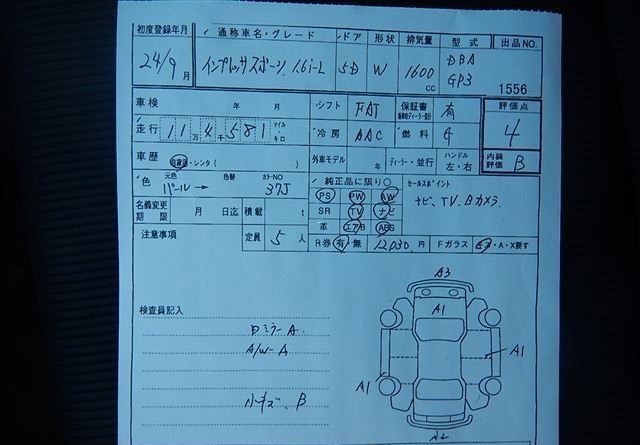 初度登録年月 通称車名・グレード ドア 形状 排気量 型式 出品NO.
24/9月 インプレッサスポーツ 1.6i-L 5D W 1600cc DBA GP3 1556
車検 年 月 シフト FAT 保証書 有 評価点
走行 11万4千581 マイル キロ 冷房 AAC 燃料 4
車歴 自家用・レンタ( ) 外車モデル 年 ディーラー・並行 ハンドル 左・右 内装評価 B
色 元色 パール→ 色替 カラーNO 37J 純正品に限り○ セールスポイント
PS PW AW ナビ、TV、Bカメラ
名義変更期限 月 日迄 積載 t SR TV ナビ
定員 5人 革 エアB ABS
注意事項 R券 有・無 12030円 Fガラス ・A・X要す
検査員記入
A3
A1
DミラーA
A/W-A
A1
A1
小キズ、B